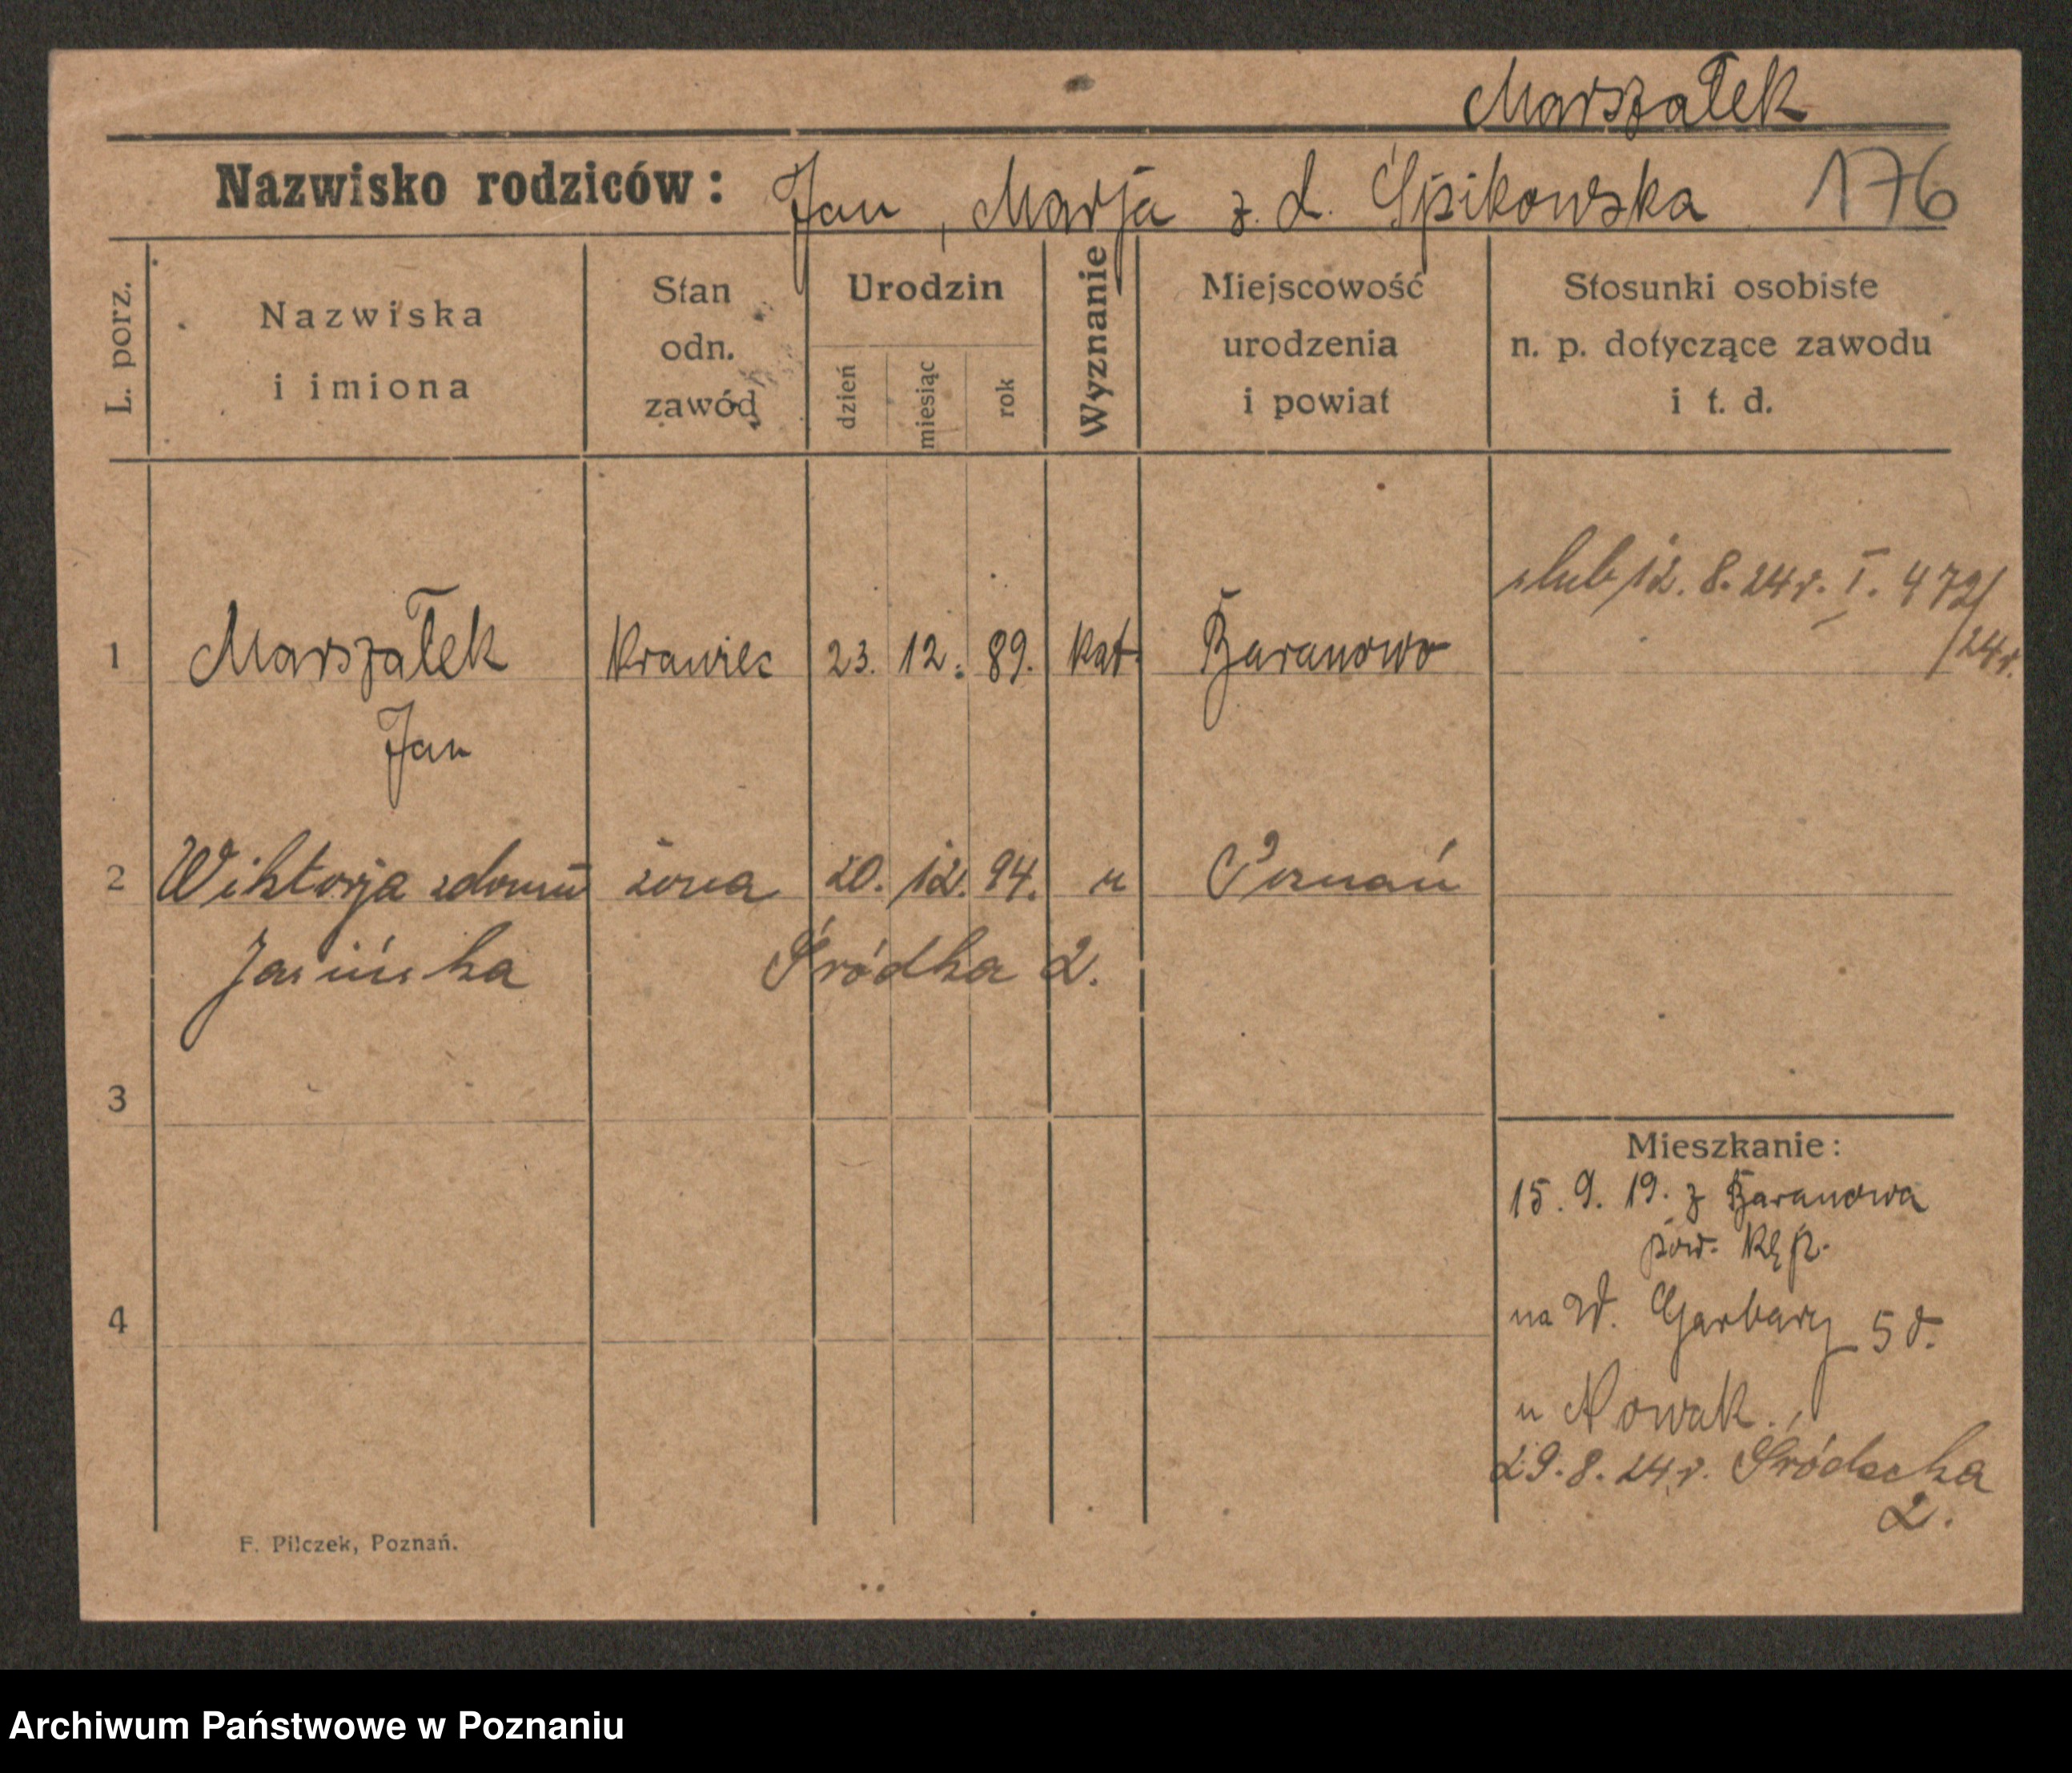 Marszałek
Nazwisko rodziców: Jan, Marja z. d. Spikowska 176
L. porz.
Nazwiska
i imiona
Stan
odn.
zawód
Urodzin
dzień
miesiąc
rok
Wyznanie
Miejscowość
urodzenia
i powiat
Stosunki osobiste
n. p. dotyczące zawodu
i t. d.
ślub 12. 8. 24 r. I. 472/
/24 r.
1 Marszałek Krawiec 23. 12. 89. kat. Baranowo
Jan
2 Wiktorja zdomu żona 20. 12. 94. " Poznań
Jasińska Śródka 2.
3
Mieszkanie:
15. 9. 19. z Baranowa
pow. Kęp.
4
na W. Garbary 5
u Nowak.
29. 8. 24 r. Śródecka
2.
F. Pilczek, Poznań.
Archiwum Państwowe w Poznaniu